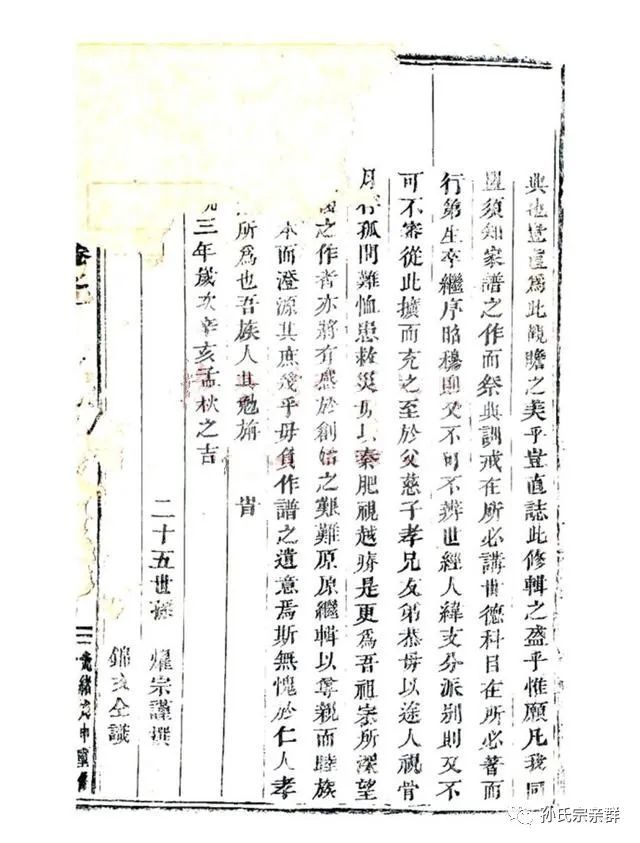 典也豈直為此觀瞻之美乎豈直誌此修輯之盛乎惟願凡我同
須知家譜之作而祭典訓戒在所必講世德科目在所必著而
行第生卒繼序昭穆則又不可不辨世經人緯支分派别則又不
可不審從此擴而充之至於父慈子孝兄友弟恭毋以途人視骨
孤問難恤患救災毋以秦肥視越瘠是更為吾祖宗所深望
之作者亦將有感於創始之艱難原原繼輯以尊親而睦族
本而澄源其庶幾乎毋負作譜之遺意焉斯無愧於仁人孝
所為也吾族人其勉旃 旹
三年歲次辛亥孟秋之吉
二十五世孫 燿宗謹撰
錦 仝識
卷之
光緒戊申重修
孙氏宗亲群